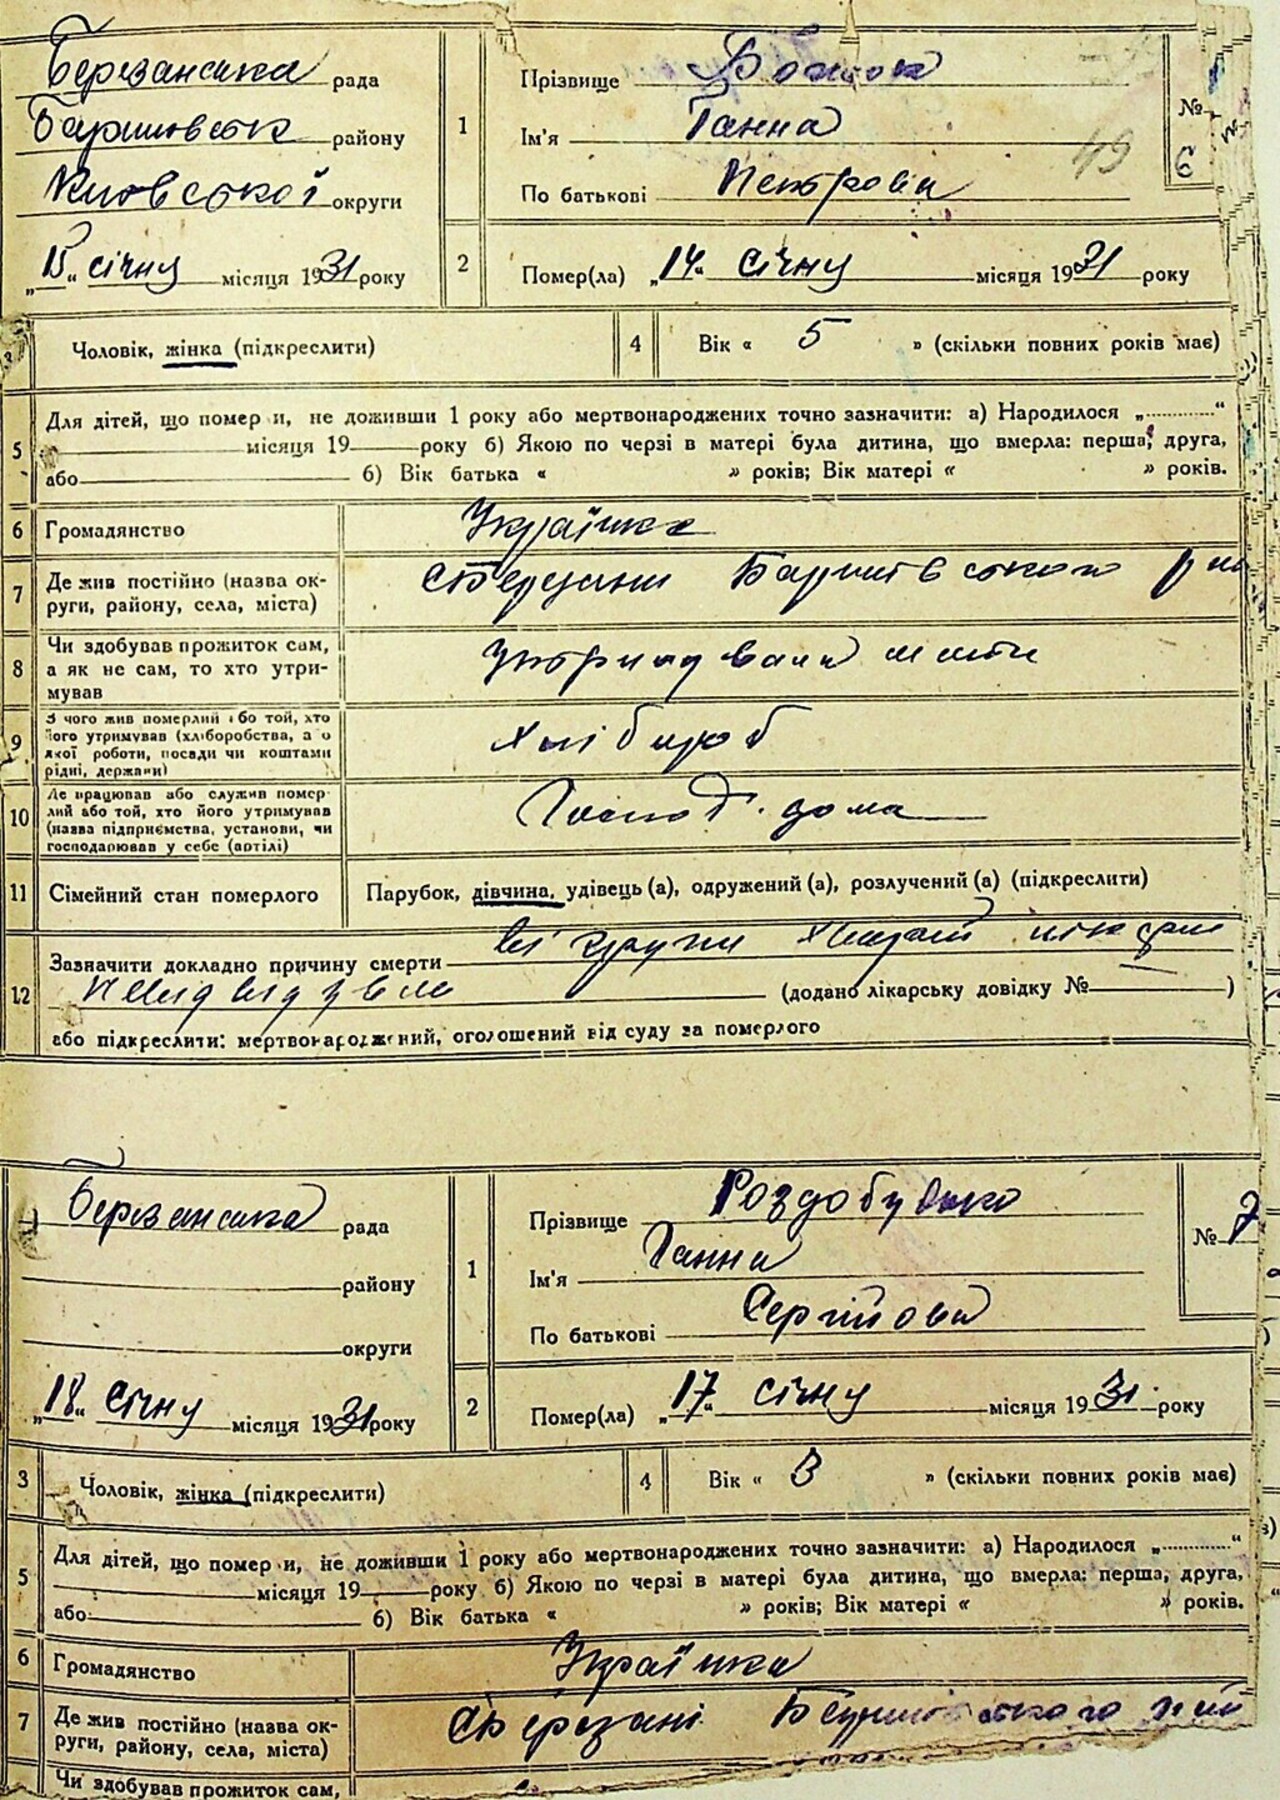 Березанська рада
Баришовськ району
Київської округи
„15“ січня місяця 1931 року
1
Прізвище
Ім'я Ганна
По батькові Петровна
№ 6
49
2
Помер(ла) „14“ січня місяця 1931 року
Чоловік, жінка (підкреслити)
4
Вік « 5 » (скільки повних років має)
5
Для дітей, що помер и, не доживши 1 року або мертвонароджених точно зазначити: а) Народилося „............“
місяця 19 року б) Якою по черзі в матері була дитина, що вмерла: перша, друга,
або б) Вік батька « » років; Вік матері « » років.
6
Громадянство
Українка
7
Де жив постійно (назва ок-
руги, району, села, міста)
с Березани Баришівського рай
8
Чи здобував прожиток сам,
а як не сам, то хто утри-
мував
Утримувала мати
9
З чого жив померлий або той, хто
його утримував (хліборобства, а о
якої роботи, посади чи коштами
рідні, держави)
Хлібороб
10
Де працював або служив помер-
лий або той, хто його утримував
(назва підприємства, установи, чи
господарював у себе (артілі)
Господ. дома
11
Сімейний стан померлого
Парубок, дівчина, удівець (а), одружений (а), розлучений (а) (підкреслити)
12
Зазначити докладно причину смерти
(додано лікарську довідку № )
або підкреслити: мертвонароджений, оголошений від суду за померлого
Березанська рада
району
округи
„18“ січня місяця 1931 року
1
Прізвище Роздобудько
Ім'я Ганна
По батькові Сергійовна
№ 7
2
Помер(ла) „17“ січня місяця 1931 року
3
Чоловік, жінка (підкреслити)
4
Вік « 3 » (скільки повних років має)
5
Для дітей, що помер и, не доживши 1 року або мертвонароджених точно зазначити: а) Народилося „............“
місяця 19 року б) Якою по черзі в матері була дитина, що вмерла: перша, друга,
або б) Вік батька « » років; Вік матері « » років.
6
Громадянство
Українка
7
Де жив постійно (назва ок-
руги, району, села, міста)
с Березані Баришівського рай
Чи здобував прожиток сам,